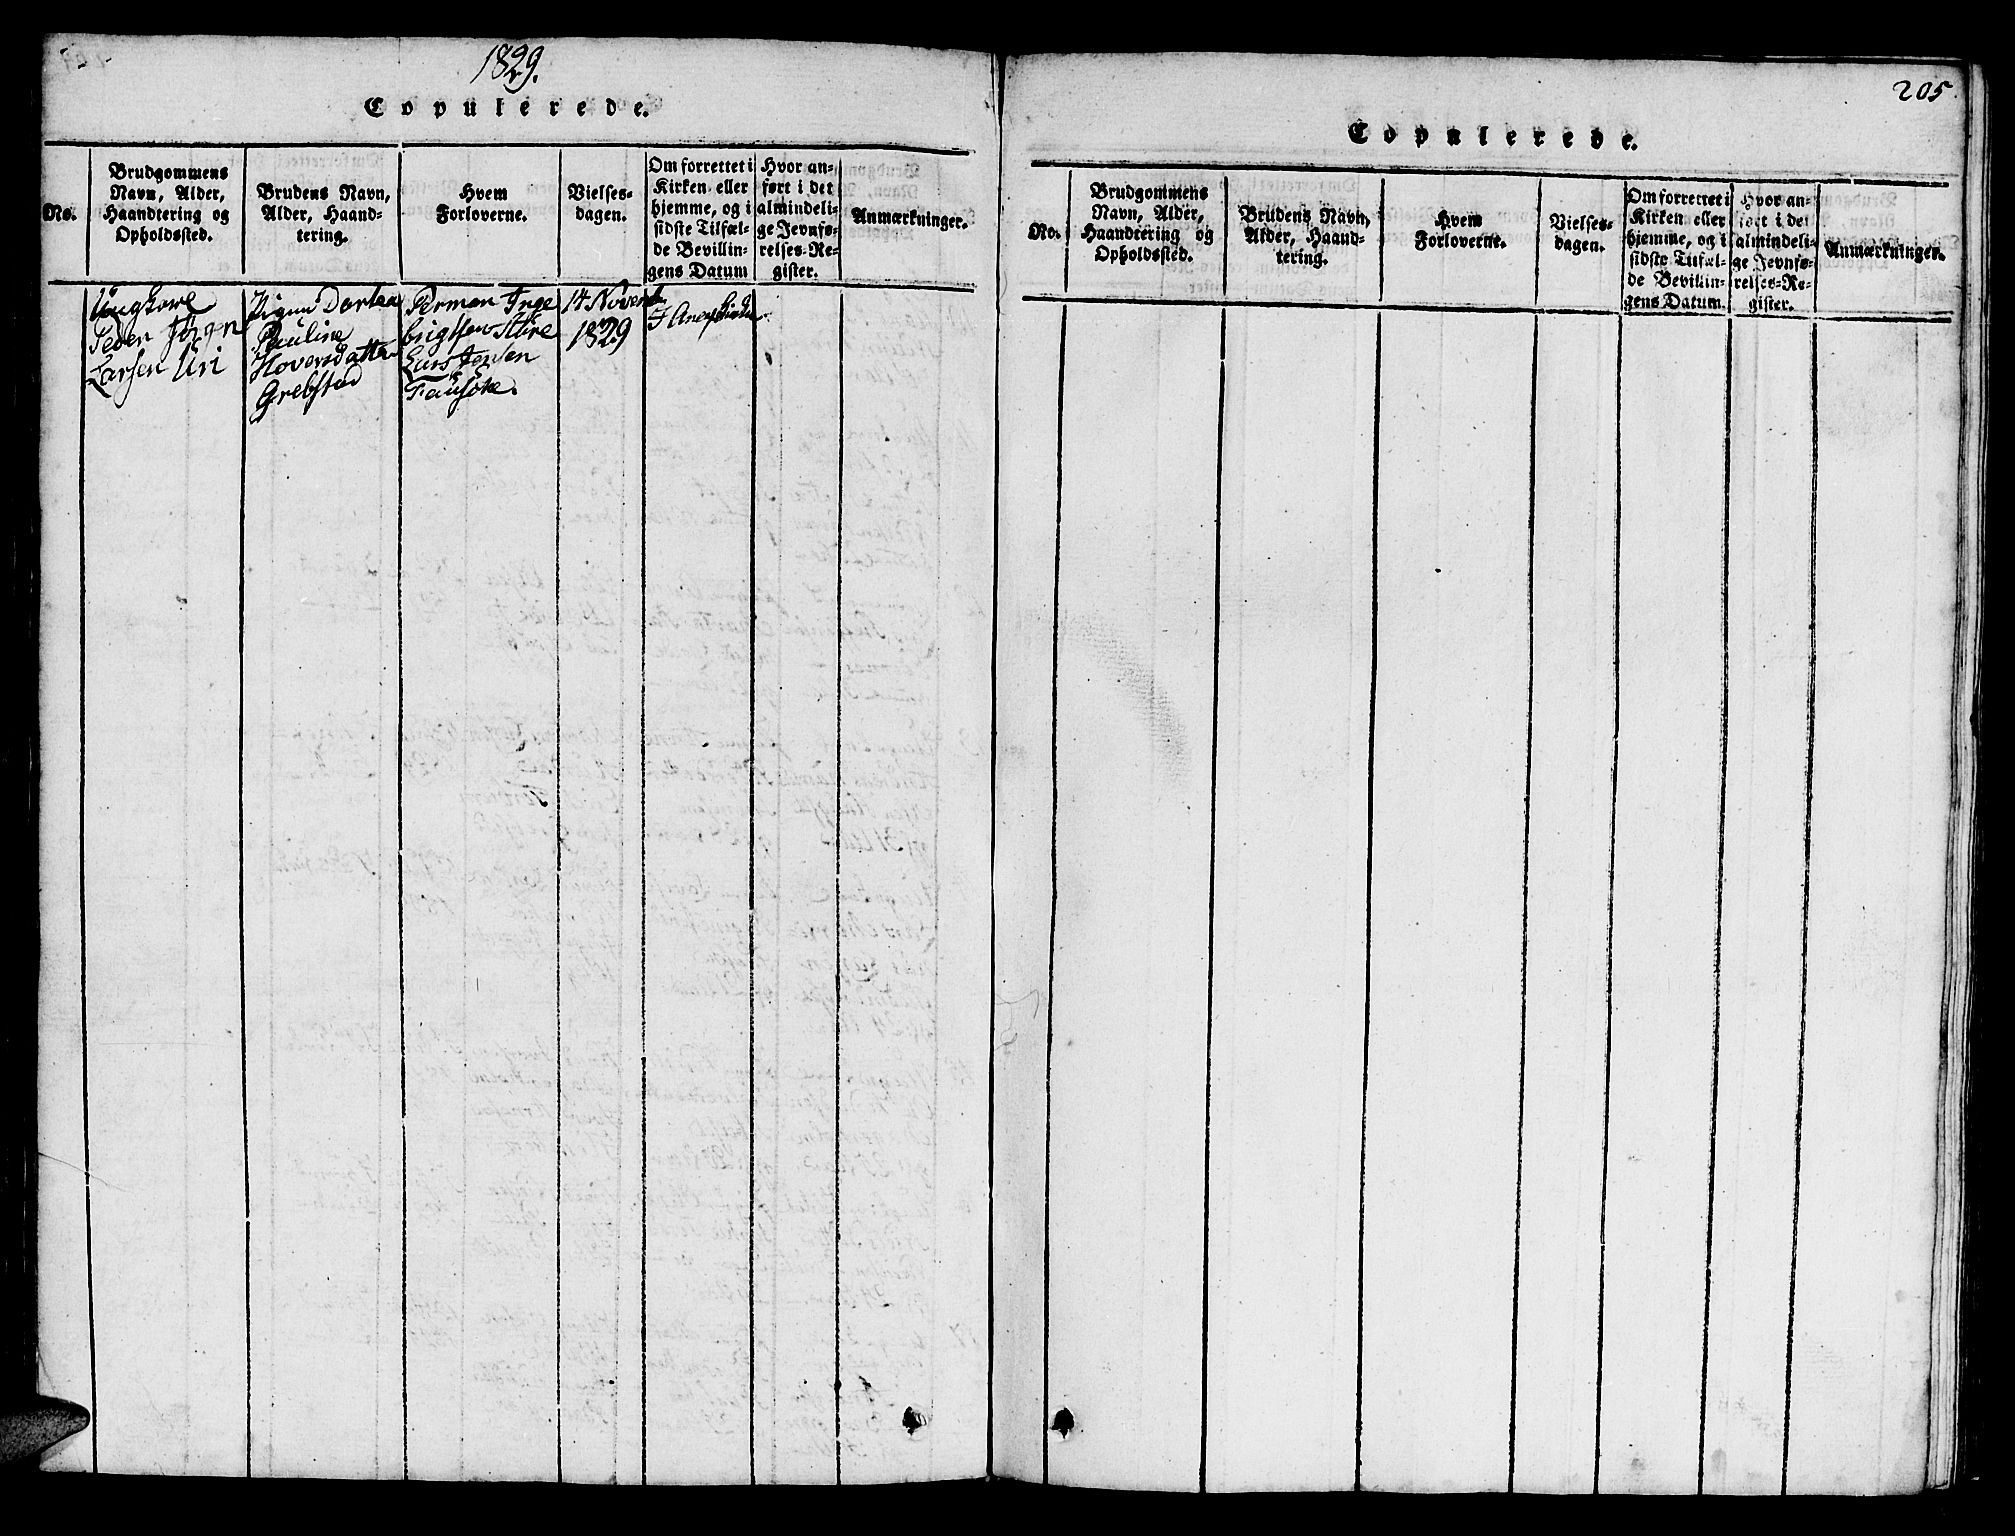 1829.
Copulerede.
No.
Brudgommens
Navn, Alder,
Haandtering og
Opholdssted.
Brudens Navn,
Alder, Haand-
tering.
Hvem
Forloverne.
Vielses-
dagen.
Om forrettet i
Kirken eller
hjemme, og i
sidste Tilfæl-
de Bevillin-
gens Datum
Hvor an-
ført i det
almindeli-
ge Jevnfø-
relses-Re-
gister.
Anmærkninger.
Ungkarl
Peder Jørgen
Larsen Uri
Pigen Dortea
Pauline
Hovensdatter
Grebstad
Perman Inge
brigtsen Stire
Lars Jensen
Fausøke.
14 Novemb
1829
205
Copulerede.
No.
Brudgommens
Navn, Alder,
Haandtering og
Opholdssted.
Brudens Navn,
Alder, Haand-
tering.
Hvem
Forloverne.
Vielses-
dagen.
Om forrettet i
Kirken eller
hjemme, og i
sidste Tilfæl-
de Bevillin-
gens Datum.
Hvor an-
ført i det
almindeli-
ge Jevnfø-
relses-Re-
gister.
Anmærkninger.